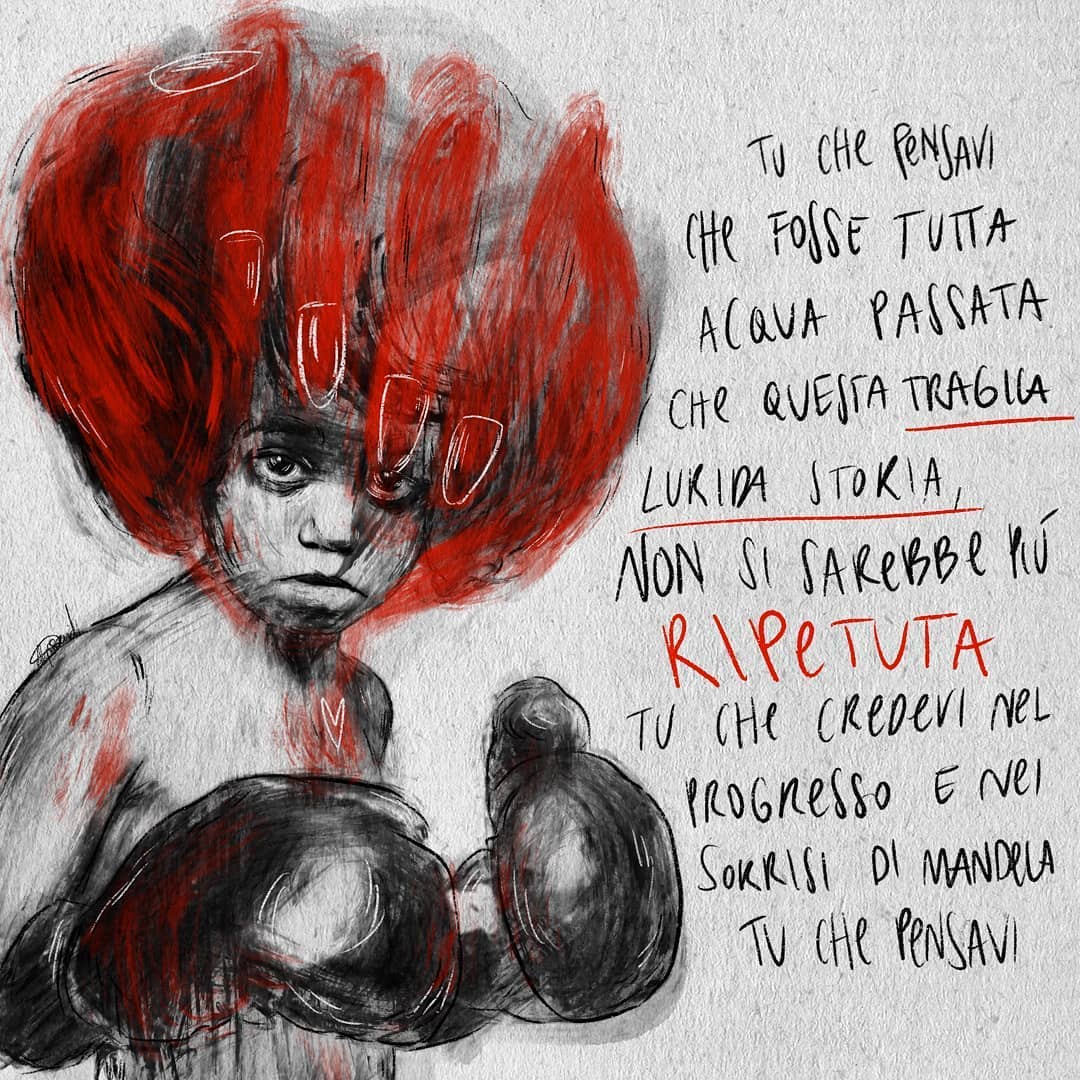 TU CHE PENSAVI
CHE FOSSE TUTTA
ACQUA PASSATA
CHE QUESTA TRAGICA
LURIDA STORIA,
NON SI SAREBBE PIÚ
RIPETUTA
TU CHE CREDEVI NEL
PROGRESSO E NEI
SORRISI DI MANDELA
TU CHE PENSAVI